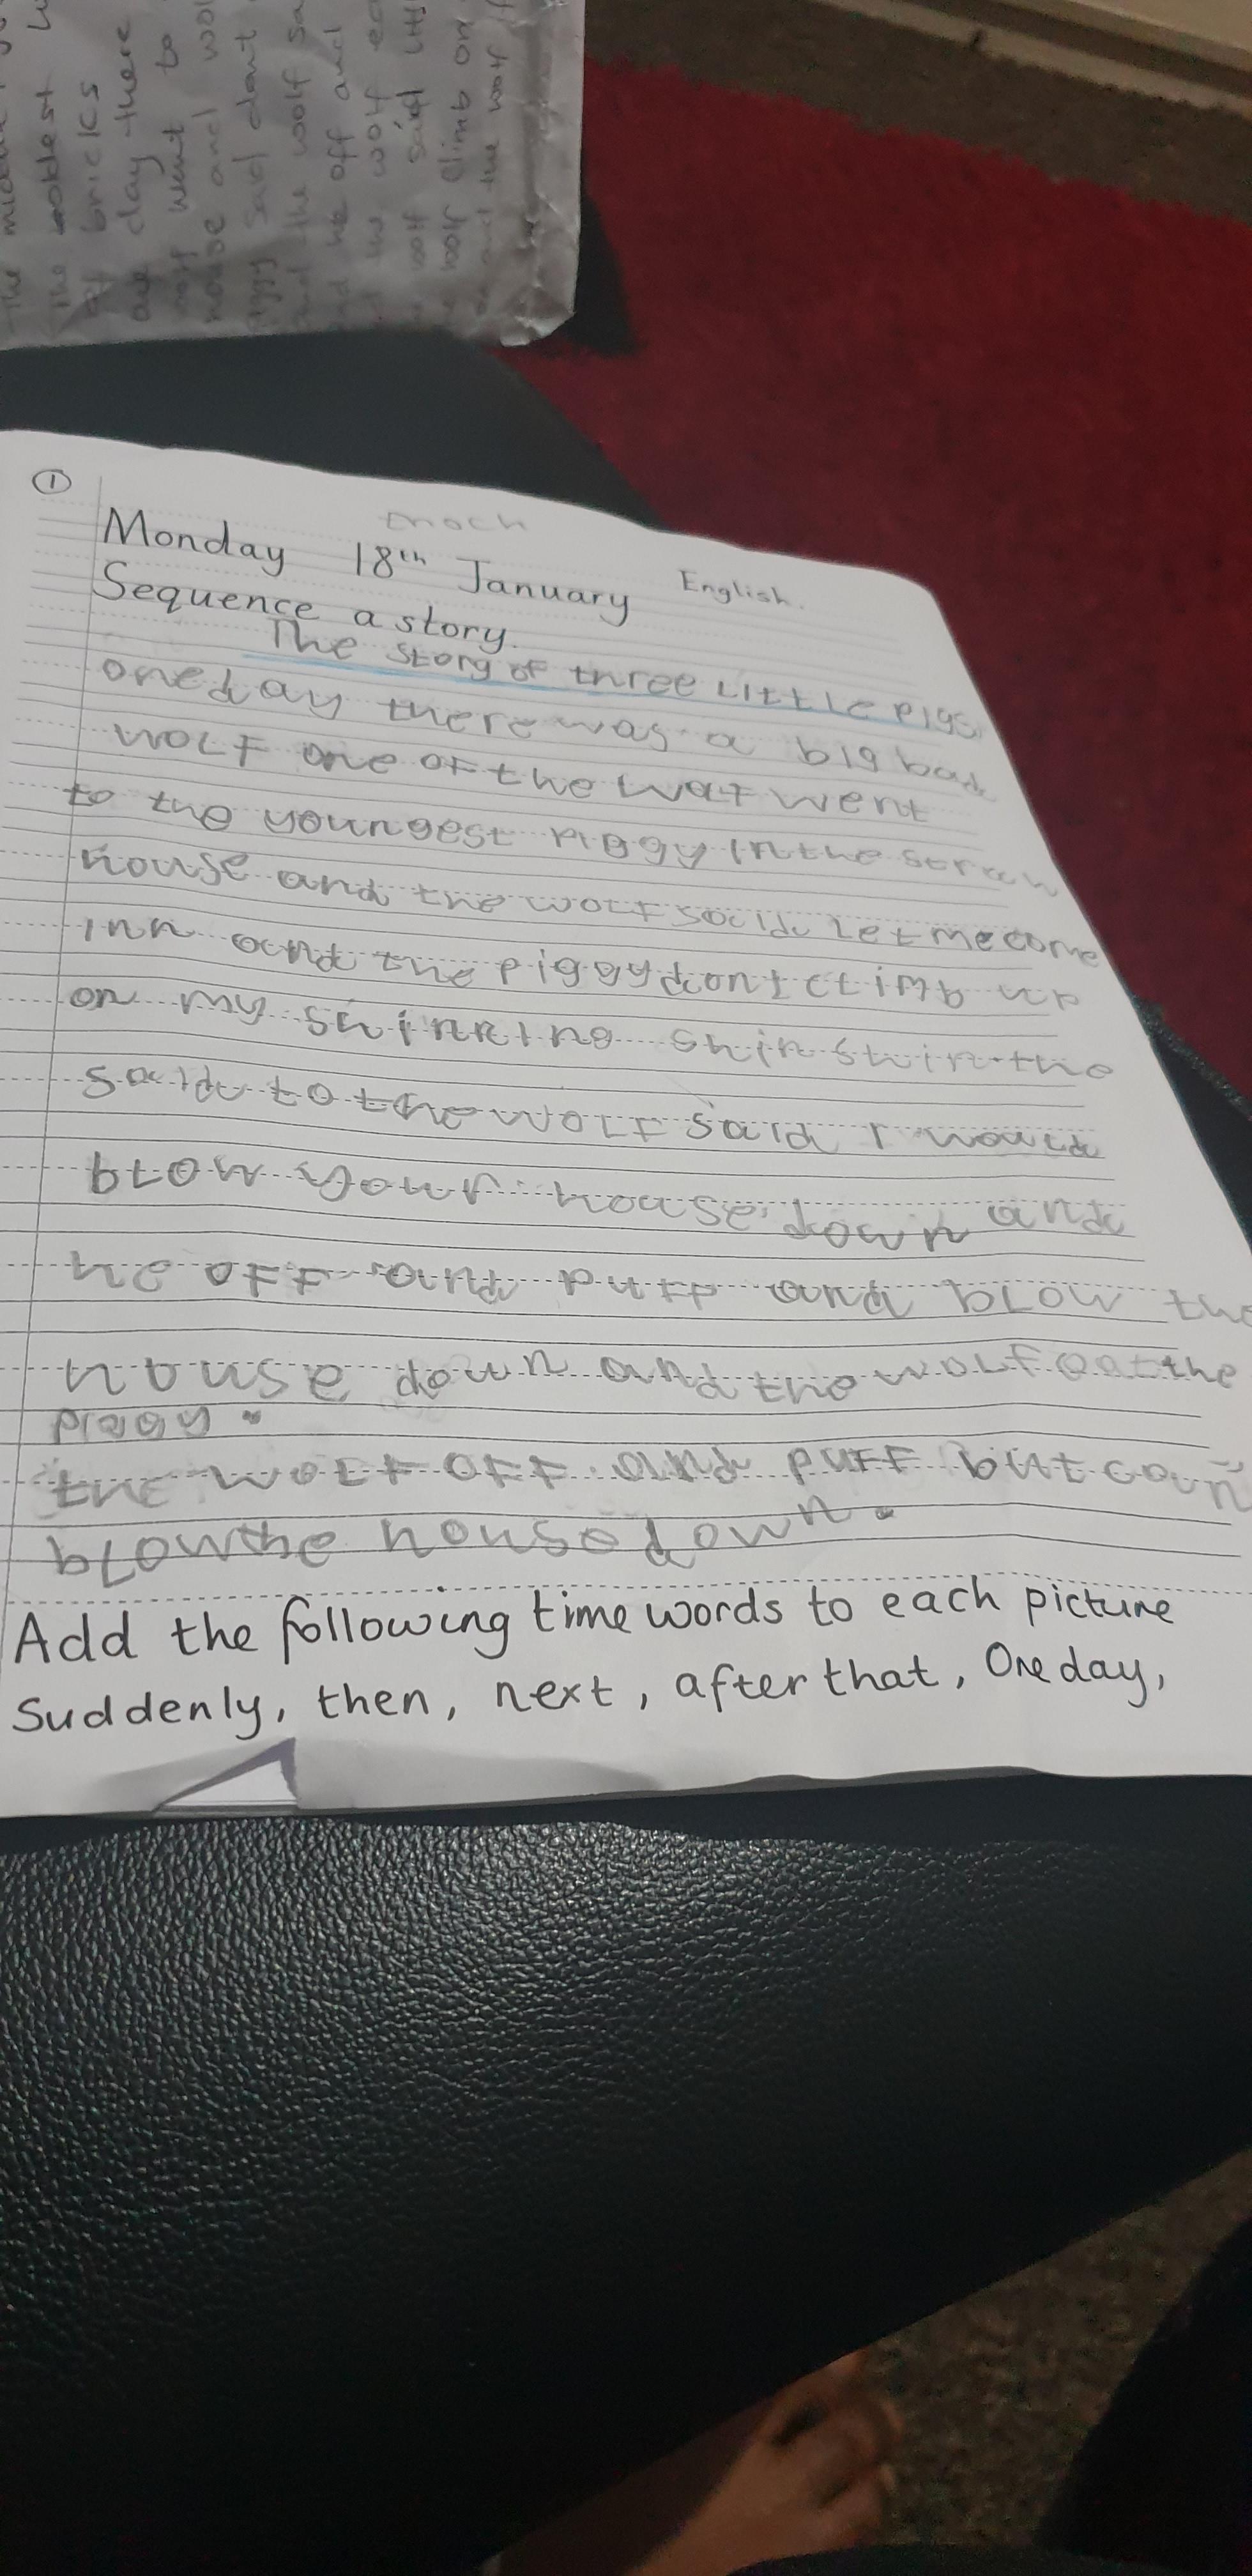 The
The
of bricks
one day there
wolf went to
house and wol
said dont
and the wolf sa
he off and
the wolf
wolf said
wolf climb on
and the wolf
①
Enoch
Monday 18th January English.
Sequence a story.
The story of three little pigs
oneday there was a big bad
wolf one of the wolf went
to the youngest piggy in the straw
house and the wolf said let me come
inn and the piggy dont climb up
on my shinning shin shin the
said to the wolf said I would
blow your house down and
he off and puff and blow the
house down and the wolf eat the
piggy.
the wolf off and puff but
blow the house down.
Add the following time words to each picture
Suddenly, then, next, after that, One day,